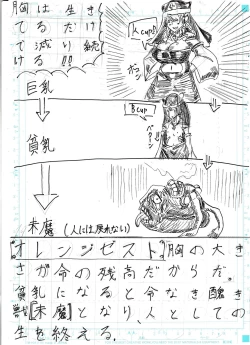 胸は生き
てるだけ
で減り続
ける!!
巨乳
Bcup
貧乳
末魔(人には戻れない)
『オレンジゼスト』胸の大き
さが命の残高だからだ。
貧乳になると命なき醜き
獣『末魔』となり、人としての
生を終える。